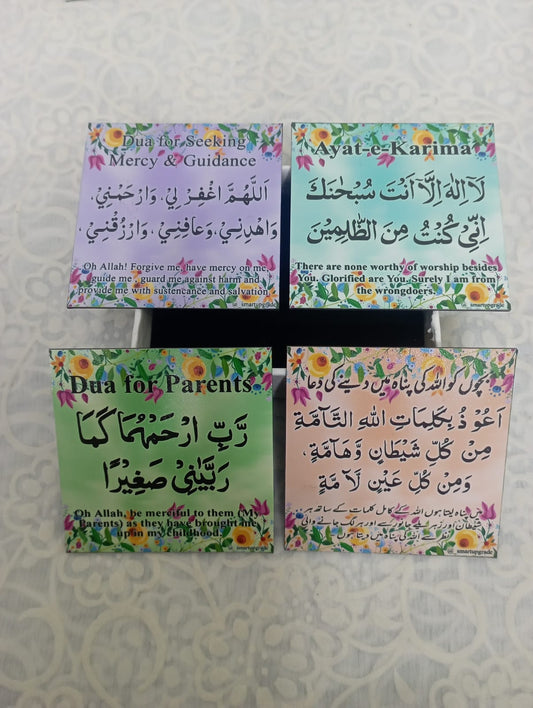 Dua for Seeking
Mercy & Guidance
اَللّٰهُمَّ اغْفِرْ لِيْ، وَارْحَمْنِيْ،
وَاهْدِنِيْ، وَعَافِنِيْ، وَارْزُقْنِيْ،
Oh Allah! Forgive me, have mercy on me,
guide me, guard me against harm and
provide me with sustencance and salvation
smartupgrade
Ayat-e-Karima
لَاۤ اِلٰهَ اِلَّاۤ اَنْتَ سُبْحٰنَكَ
اِنِّيْ كُنْتُ مِنَ الظّٰلِمِيْنَ
There are none worthy of worship besides
You. Glorified are You. Surely I am from
the wrongdoers.
smartupgrade
Dua for Parents
رَبِّ ارْحَمْهُمَا كَمَا
رَبَّيٰنِيْ صَغِيْرًا
Oh Allah, be merciful to them (My
Parents) as they have brought me
up in my childhood.
smartupgrade
بچوں کو اللہ کی پناہ میں دینے کی دعا
اَعُوْذُ بِكَلِمَاتِ اللهِ التَّامَّةِ
مِنْ كُلِّ شَيْطَانٍ وَّهَامَّةٍ،
وَمِنْ كُلِّ عَيْنٍ لَامَّةٍ
میں پناہ لیتا ہوں اللہ کے کامل کلمات کے ساتھ ہر
شیطان اور زہریلے جانور سے اور ہر لگ جانے والی
نظر سے اللہ کی پناہ میں دیتا ہوں
smartupgrade